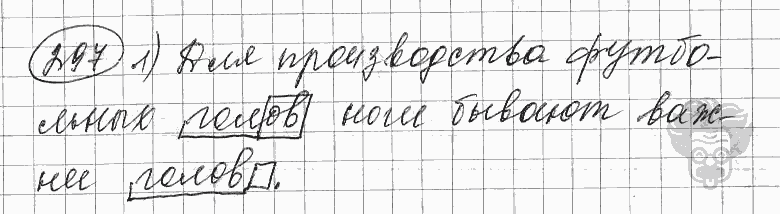 297 1) Для производства футбо-
льных голов ноги бывают важ-
ней голов.